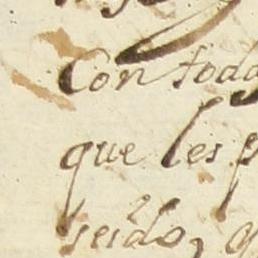 Con toda
que les p
seido, q